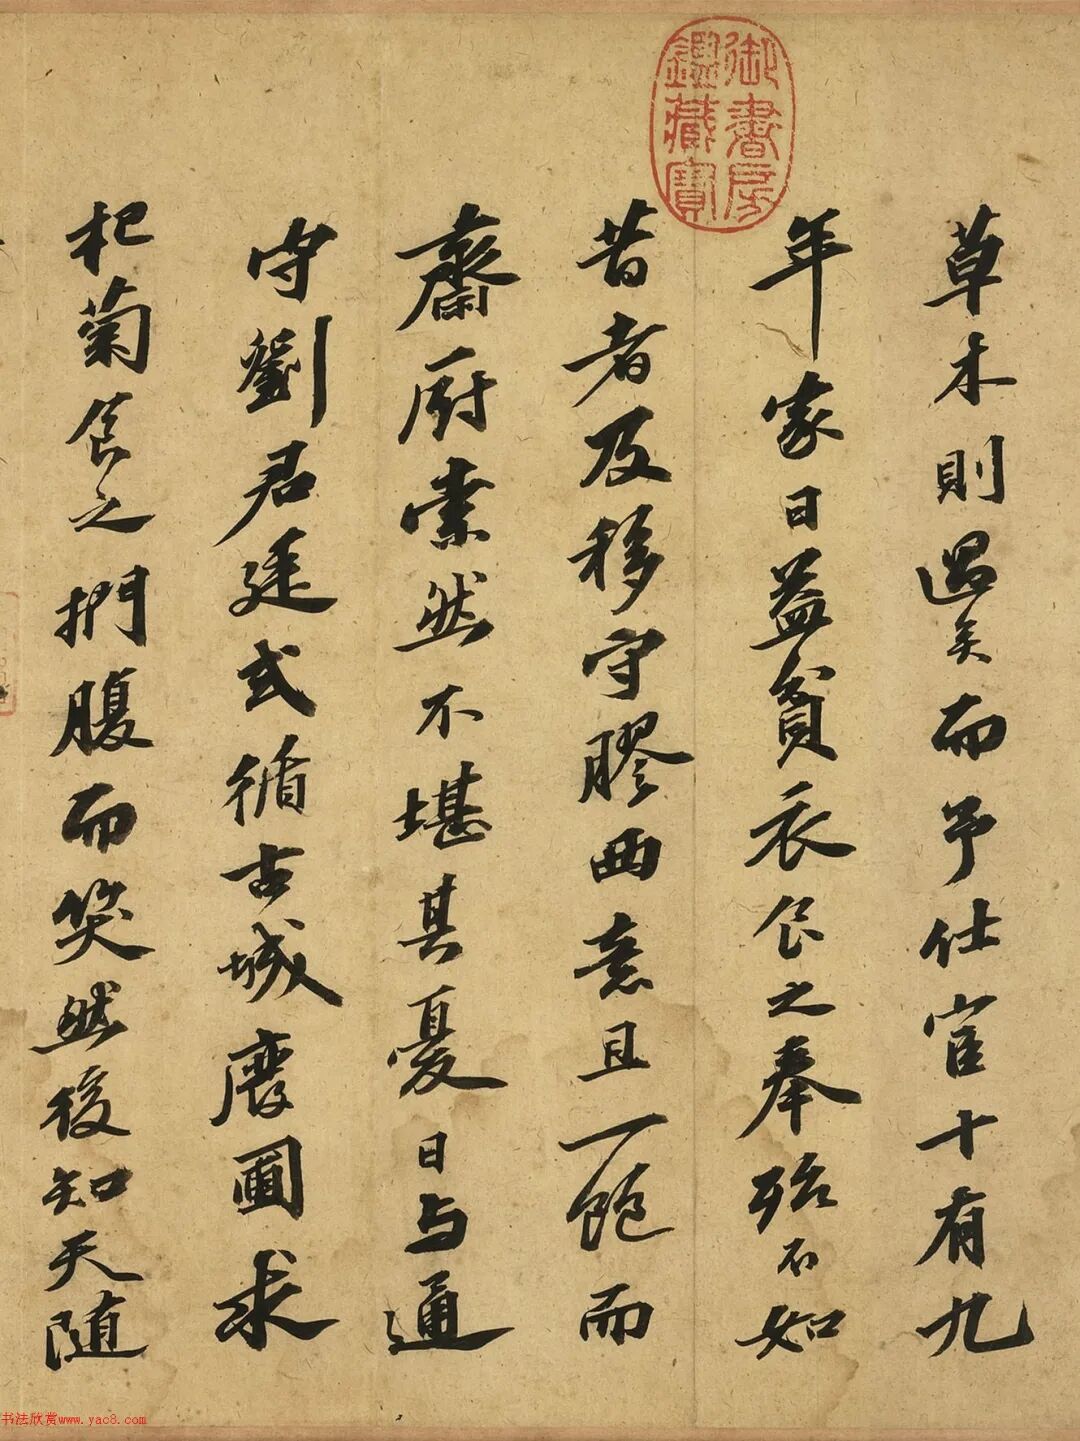 草木則過矣而予仕宦十有九
年家日益貧衣食之奉殆不如
昔者及移守膠西意且一飽而
齋厨索然不堪其憂日與通
守劉君廷式循古城廢圃求
杞菊食之捫腹而笑然後知天随
御書房
鑑藏寶
书法欣赏www.yac8.com